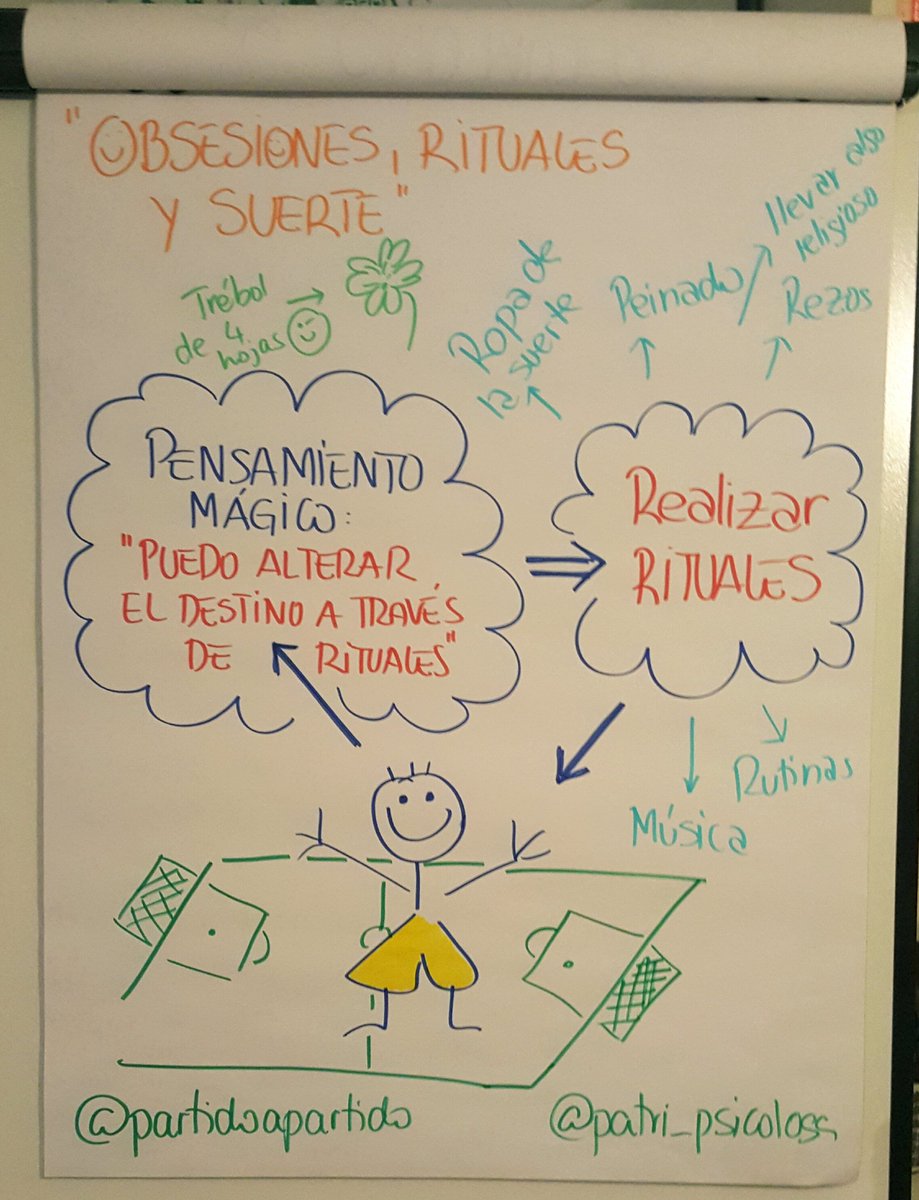 "OBSESIONES, RITUALES
Y SUERTE"
Trébol
de 4
hojas
Ropa de
la suerte
Peinado
llevar algo
religioso
Rezos
PENSAMIENTO
MÁGICO:
"PUEDO ALTERAR
EL DESTINO A TRAVÉS
DE RITUALES"
Realizar
RITUALES
Rutinas
Música
@partidoapartido